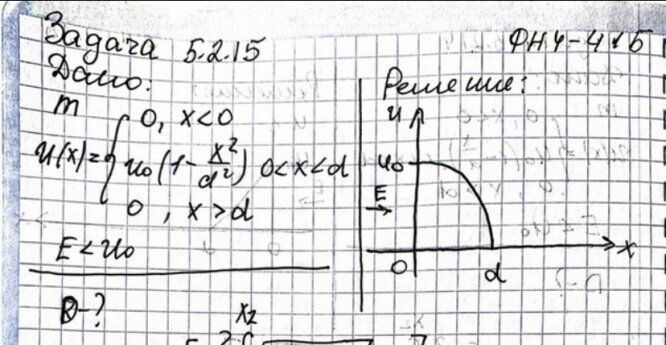 Задача 5.2.15
ФН4-41Б
Дано:
m
U(x)={
0, x<0
U₀(1-x²/d²) 0<x<d
0, x>d
E<U₀
D-?
Решение:
U
U₀
E
0
d
x
x₂